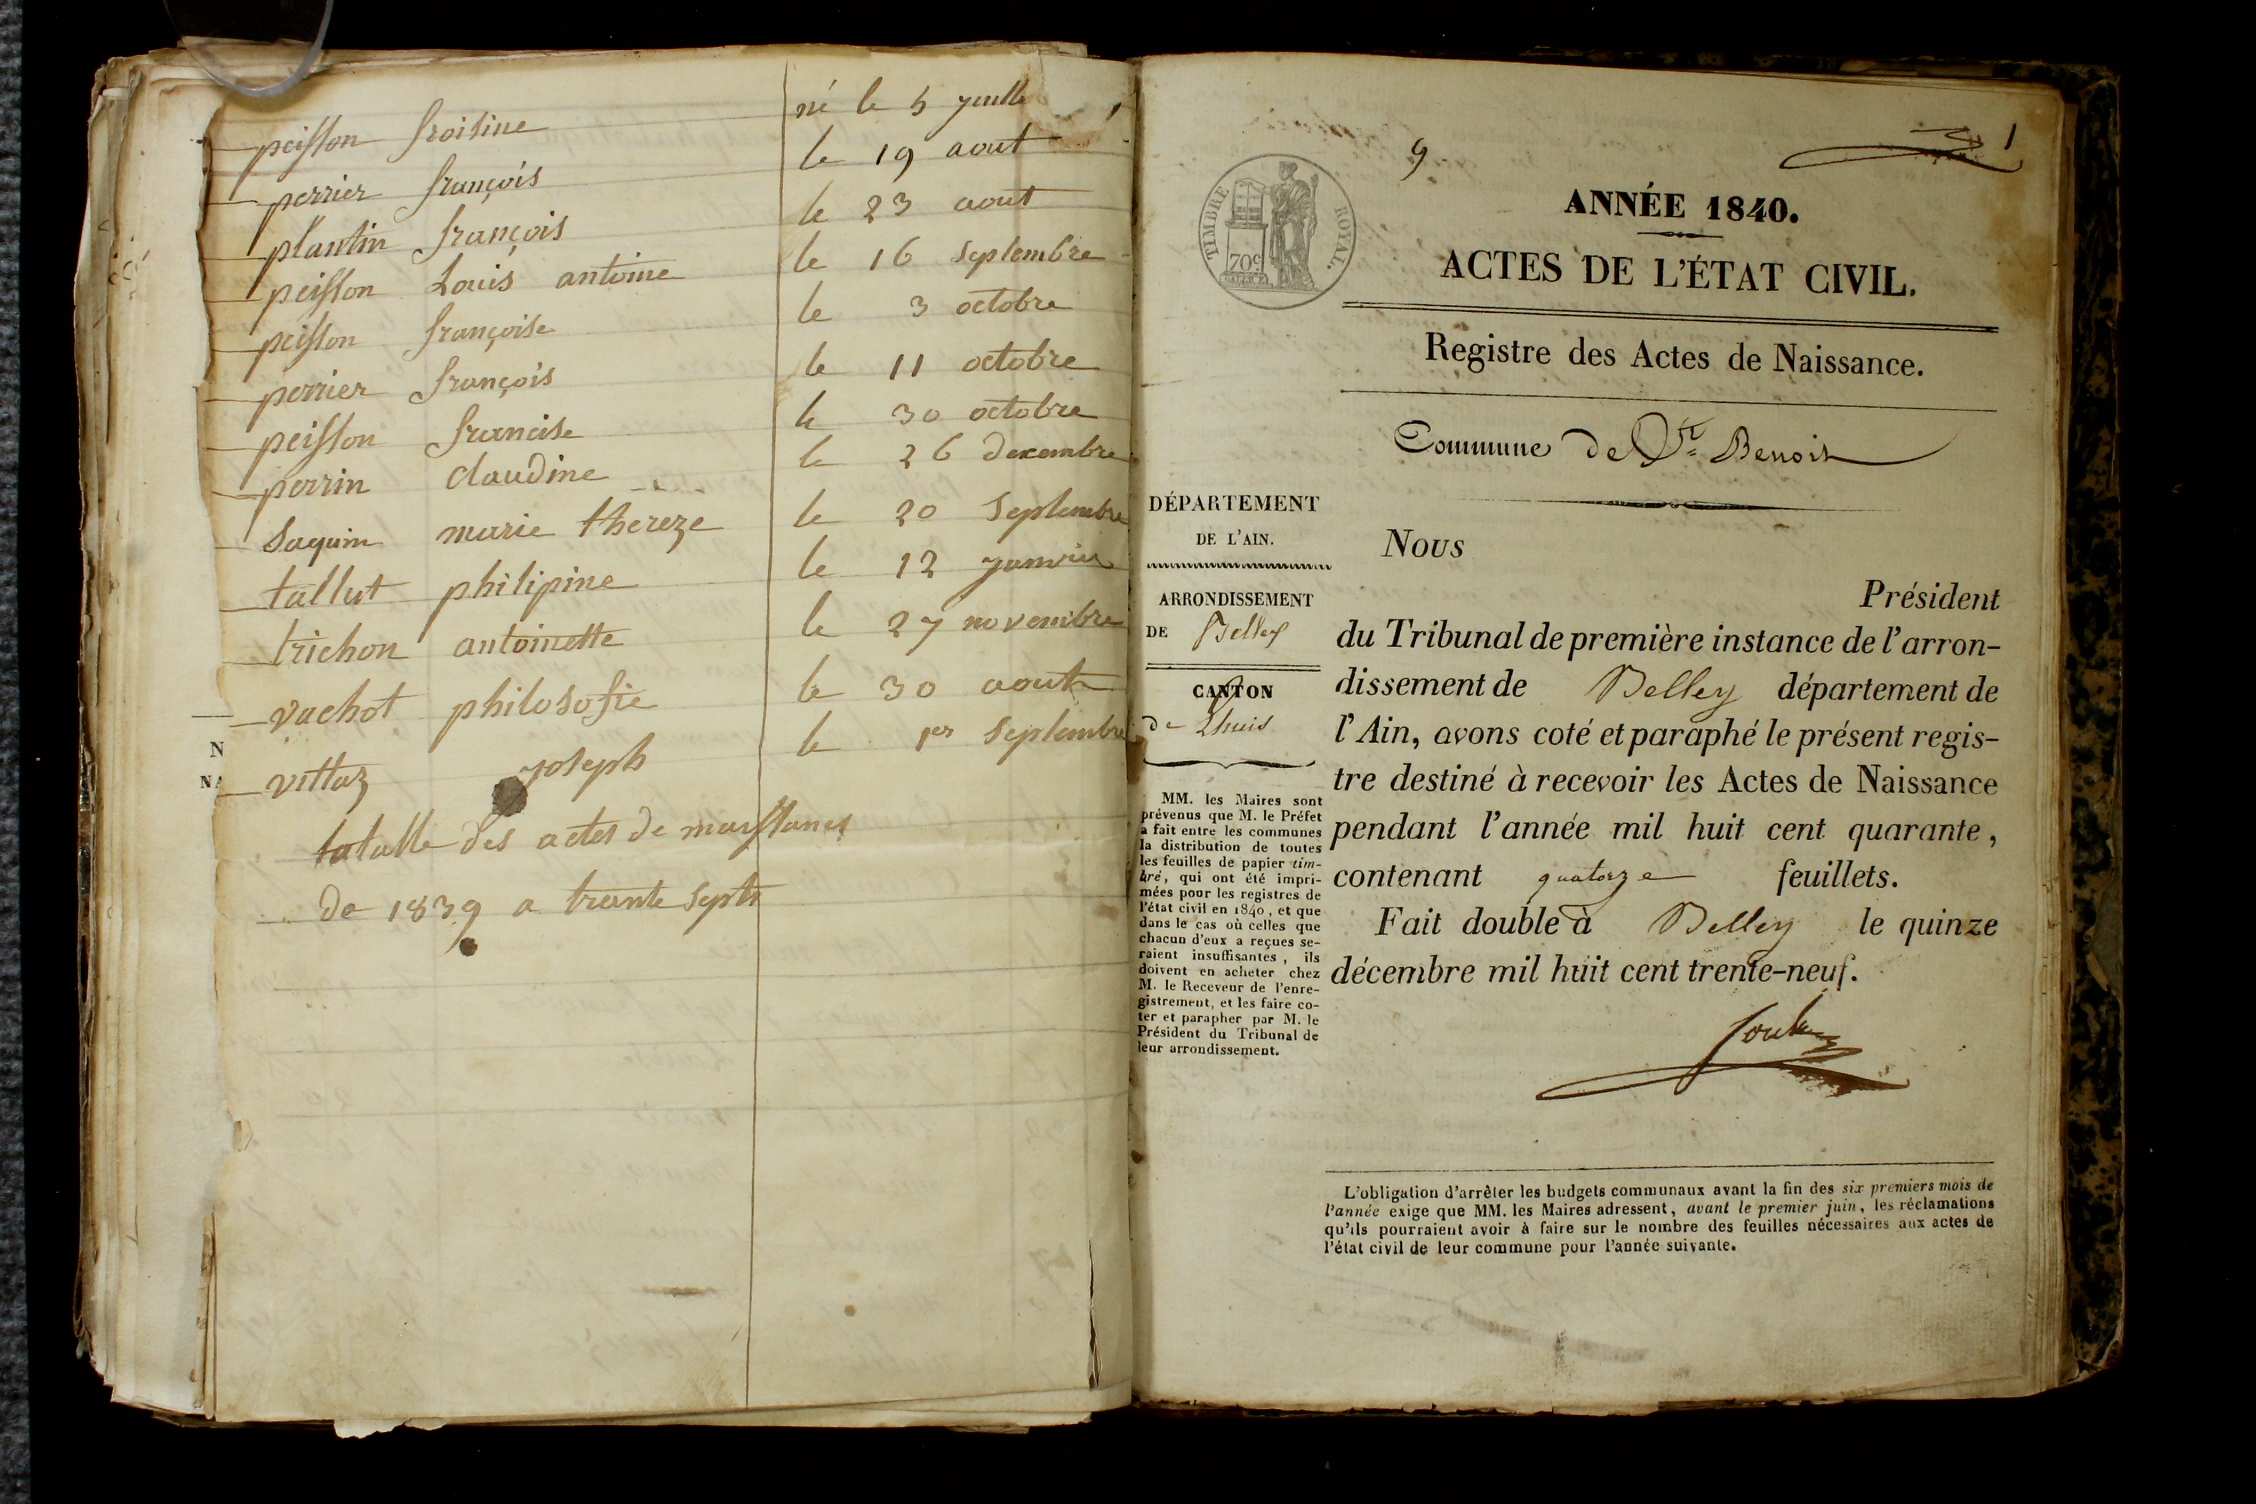 peisson froisine né le 5 yuille
perrier françois le 19 aout
plantin françois le 23 aout
peisson Louis antoine le 16 Septembre
peisson françoise le 3 octobre
perrier françois le 11 octobre
peisson francise le 30 octobre
perrin claudine le 26 decembre
Saquin marie thereze le 20 Septembre
tallut philipine le 12 yanvier
trichon antoinette le 27 novembre
vachot philosofie le 30 aout
vittoz yoseph le 1er Septembre
totalle des actes de
de 1839 a trante Septs
N
NA
9
1
TIMBRE ROYAL.
70c
ANNÉE 1840.
ACTES DE L'ÉTAT CIVIL.
Registre des Actes de Naissance.
Commune de St Benoit
DÉPARTEMENT
DE L'AIN.
ARRONDISSEMENT
DE Belley
CANTON
de Lhuis
MM. les Maires sont
prévenus que M. le Préfet
a fait entre les communes
la distribution de toutes
les feuilles de papier tim-
bré, qui ont été impri-
mées pour les registres de
l'état civil en 1840, et que
dans le cas où celles que
chacun d'eux a reçues se-
raient insuffisantes, ils
doivent en acheter chez
M. le Receveur de l'enre-
gistrement, et les faire co-
ter et parapher par M. le
Président du Tribunal de
leur arrondissement.
Nous
Président
du Tribunal de première instance de l'arron-
dissement de Belley département de
l'Ain, avons coté et paraphé le présent regis-
tre destiné à recevoir les Actes de Naissance
pendant l'année mil huit cent quarante,
contenant quatorze feuillets.
Fait double à Belley le quinze
décembre mil huit cent trente-neuf.
L'obligation d'arrêter les budgets communaux avant la fin des six premiers mois de
l'année exige que MM. les Maires adressent, avant le premier juin, les réclamations
qu'ils pourraient avoir à faire sur le nombre des feuilles nécessaires aux actes de
l'état civil de leur commune pour l'année suivante.